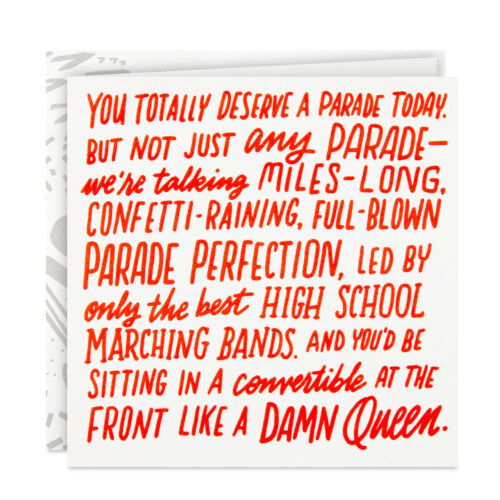 YOU TOTALLY DESERVE A PARADE TODAY.
BUT NOT JUST any PARADE—
we're talking MILES-LONG,
CONFETTI-RAINING, FULL-BLOWN
PARADE PERFECTION, LED BY
only the best HIGH SCHOOL
MARCHING BANDS. AND YOU'D BE
SITTING IN A convertible AT THE
FRONT LIKE A DAMN Queen.